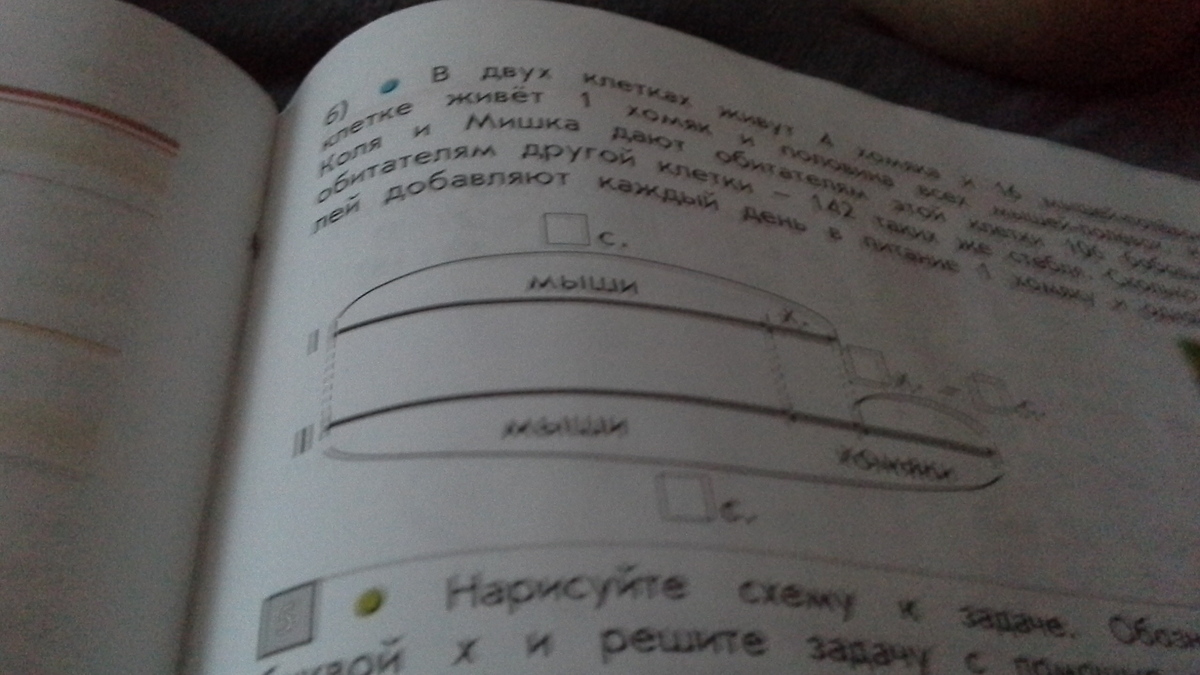 б) В двух клетках живут 4 хомяка и 16 мышей-
клетке живёт 1 хомяк и половина всех мышей-
Коля и Мишка дают обитателям этой клетки 106
обитателям другой клетки – 142 таких же стебля. Сколько
лей добавляют каждый день в питание 1 хомяку и
□ с.
мыши
х.
II
□ х. – □ с.
мыши
хомяки
III
□ с.
5 Нарисуйте схему к задаче.
х и решите задачу с